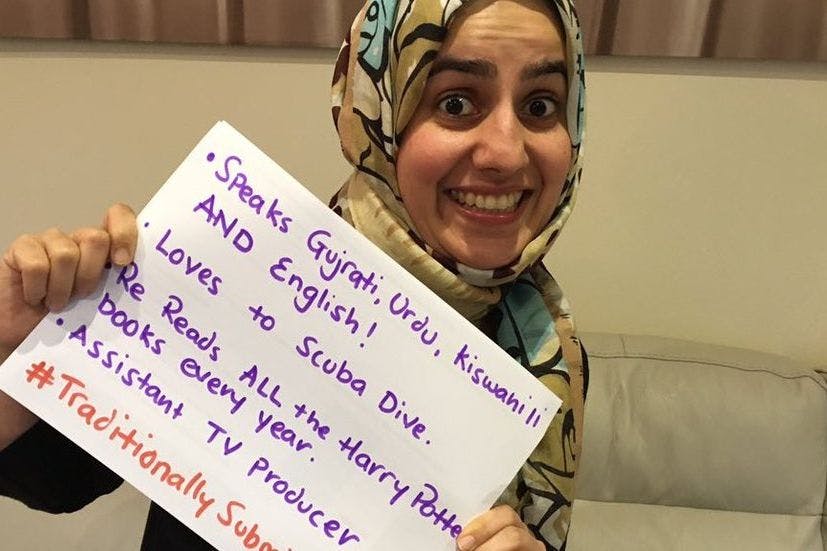 • Speaks Gujrati, Urdu, Kiswahili
AND English!
• Loves to Scuba Dive.
• Re Reads ALL the Harry Potte
books every year.
• Assistant TV Producer
#Traditionally Submi